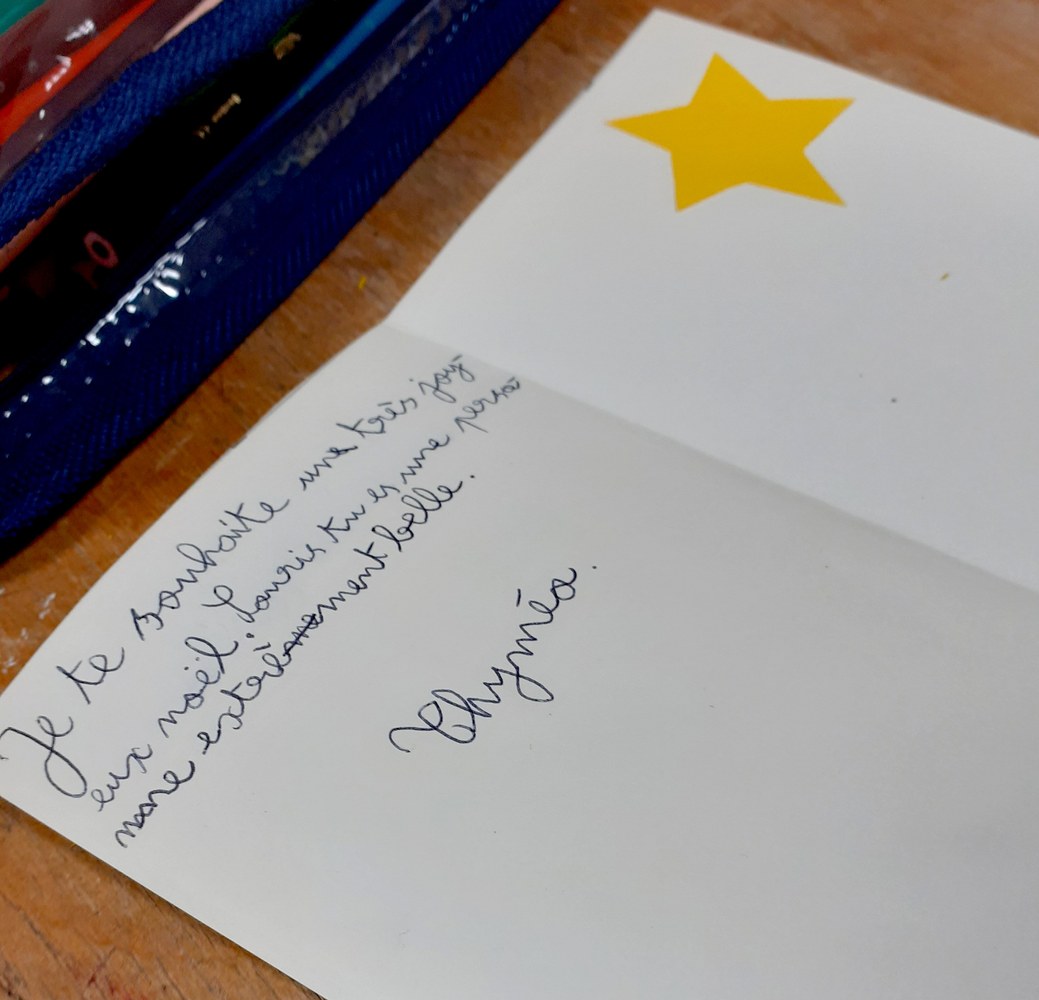 Je te souhaite une très joy-
eux noël. Louris tu es une perso-
nne extrèmement belle.
Thyméo.